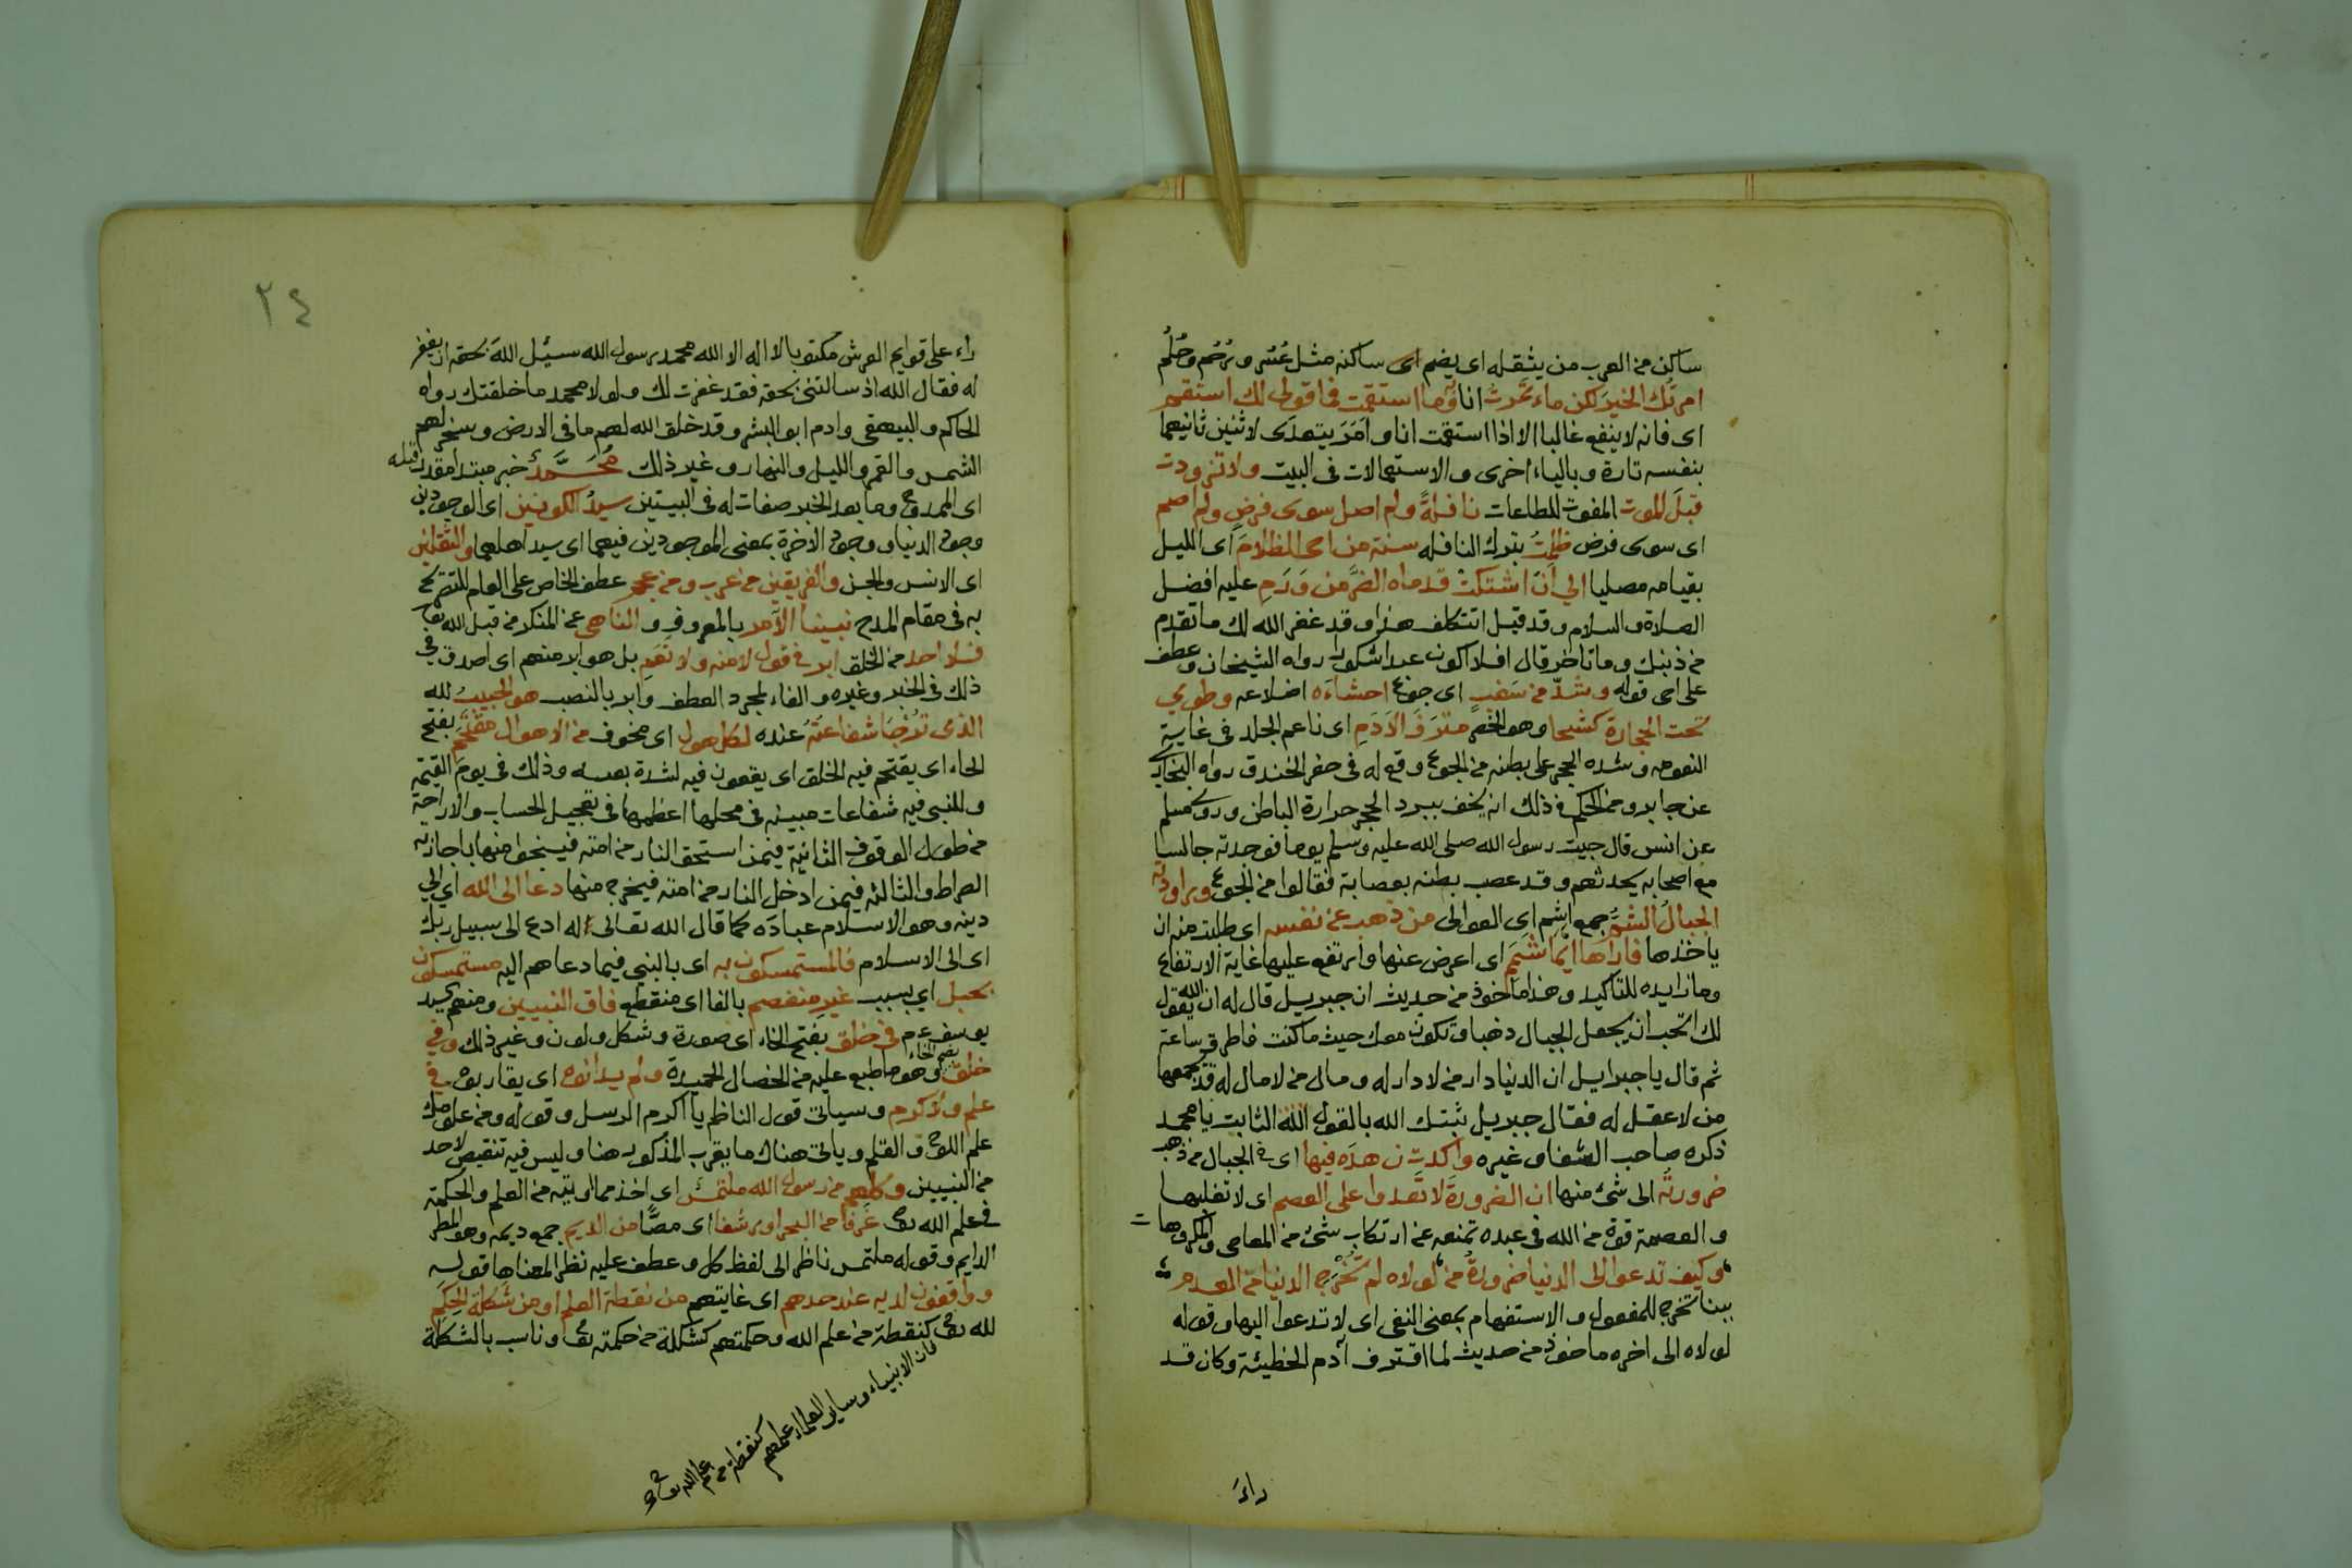 ساكن من العرب من يثقله اى يضم اى ساكنه مثل عُسُر ورُحُم وحُلُم
امرتك الخير لكن ماءتمرت انا به وما استقمت فما قولى لك استقم
اى فانه لاينفع غالبا الا اذا استقمت انا وامَرَ يتعدى لاثنين ثانيهما
بنفسه تارة وبالياء اخرى والاستعمالات فى البيت ولا تزودت
قبلَ الموت المفوت للطاعات نافلةً ولم اصل سوى فرض ولم اصم
اى سوى فرض ظلمتُ بترك النافله سنة من احى الظلامَ اى الليل
بقيامه مصليا الي اَن اشتكتْ قدماه الضُرَّ من وَرَمِ عليه افضل
الصلاة والسلام وقد قيل اتتكلف هذا وقد غفر الله لك ما تقدم
من ذنبك وما تاخر قال افلا اكون عبدا شكورا رواه الشيخان وعطف
على احى قوله وشدّ من سَغَبٍ اى جوع احشاءَه اضلاعه وطوي
تحت الحجارة كشحا وهو الخصر متْرَفَ الاَدَمِ اى ناعم الجلد فى غاية
النعومه وشده الحجر على بطنه من الجوع وقع له فى حفر الخندق رواه البخاري
عن جابر ومن الحكم فى ذلك انه يخف ببرد الحجر حرارة الباطن وروى مسلم
عن انس قال جيت رسول الله صلى الله عليه وسلم يوما فوجدته جالسا
مع اصحابه يحدثهم وقد عصب بطنه بعصابة فقالوا من الجوع وراودته
الجبالُ الشمُّ جمع اشم اى العوالى من ذهب عن نفسه اى طلبت منه ان
ياخذها فاراها ايَّما شَمَمِ اى اعرض عنها وارتفع عليها غاية الارتفاع
وما زايده للتاكيد وهذا ماخوذ من حديث ان جبريل قال له ان الله يقول
لك اتحب ان يجعل الجبال ذهبا وتكون معك حيث ما كنت فاطرق ساعة
ثم قال ياجبرايل ان الدنيا دار من لا دار له ومال من لا مال له قد يجمعها
من لا عقل له فقال جبريل ثبتك الله بالقول الثابت يا محمد
ذكره صاحب الشفا وغيره واكدت زهدَه فيها اى فى الجبال من ذهب
ضرورتُه الى شئ منها ان الضرورةَ لا تعدوا على العصم اى لا تغلبها
والعصمة قوة من الله فى عبده تمنعه عن ارتكاب شئ من المعاصى والمكروهات
وكيف تدعوا الى الدنيا ضرورةُ من لولاه لم تُخْرَجِ الدنيا من العدم
ببنا تخرج للمفعول والاستفهام بمعنى النفى اى لا تدعوا اليها وقوله
لولاه الى اخره ماخوذ من حديث لما اقترف آدم الخطيئة وكان قد
راءَ
٢٤
راء على قوايم العرش مكتوبا لا اله الا الله محمد رسول الله سئيل اللهَ بحقه ان يغفر
له فقال الله اذ سالتنى بحقه فقد غفرت لك ولولا محمد ما خلقتك رواه
الحاكم والبيهقى وادم ابو البشر وقد خلق الله لهم ما فى الارض وسخر لهم
الشمس والقمر والليل والنهار وغير ذلك مُحَمَّدٌ خبر مبتدأ مقدر قبله
اى الممدوح وما بعد الخبر صفات له فى البيتين سيدُ الكونين اى الوجودين
وجود الدنيا ووجود الاخرة بمعنى الموجودين فيهما اى سيد اهلهما والثقلين
اى الانس والجن والفريقين من عرب ومن عجم عطف الخاص على العام للتصريح
به فى مقام المدح نبينا الآمر بالمعروف والناهى عن المنكر من قبل الله تعالى
فلا احد من الخلق ابر فى قول لا منه ولا نَعَمِ بل هو ابر منهم اى اصدق فى
ذلك فى الخبر وغيره والفاء لمجرد العطف وابر بالنصب هو الحبيبُ لله
الذى تُرجَا شفاعتُه عنده لكل هول اى مخوف من الاهوال مقتَحَمِ بفتح
الحاء اى يقتحم فيه الخلق اى يقعون فيه لشدة بعسه وذلك فى يوم القيمة
وللنبى فيه شفاعات مبينه فى محلها اعظمها فى تعجيل الحساب والاراحة
من طول الوقوف الثانية فيمن استحق النار من امته فينجوا منها باجازته
الصراط والثالثه فيمن ادخل النار من امته فيخرج منها دعا الى الله اي الي
دينه وهو الاسلام عبادَه كما قال الله تعالى له ادع الى سبيل ربك
اى الى الاسلام فالمستمسكون به اى بالنبى فيما دعاهم اليه مستمسكون
بحبل اي بسبب غيرِ منفصم بالفا اى منقطع فاق النبيين ومنهم
يوسف عم فى خَلق بفتح الخاء اى صورة وشكل ولون وغير ذلك وفي
خلق بضم الخاء وهو ما طبع عليه من الخصال الحميدة ولم يدانوه اى يقاربوه في
علم ولا كرم وسياتى قول الناظم يا اكرم الرسل وقوله ومن علومك
علم اللوح والقلم وياتى هناك ما يقرب المذكور هنا وليس فيه تنقيص لاحد
من النبيين وكلهم من رسول الله ملتمسٌ اى اخذ مما اوتيه من العلم والحكمة
فى علم الله تعالى غَرفا من البحر او رشفا اى مصًّا من الديم جمع ديمه وهو المطر
الدايم وقوله ملتمس ناظر الى لفظ كل وعطف عليه نظرا لمعناها قوله
وواقفون لديه عند حدهم اى غايتهم من نقطة العلم او من شكلة الحِكَمِ
لله تعالى كنقطة من علم الله وحكمتهم كشكلة من حكمته تعالى وناسب بالشكلة
فان الانبياء وساير العلماء علمهم
كنقطة من علم الله تعالى صح